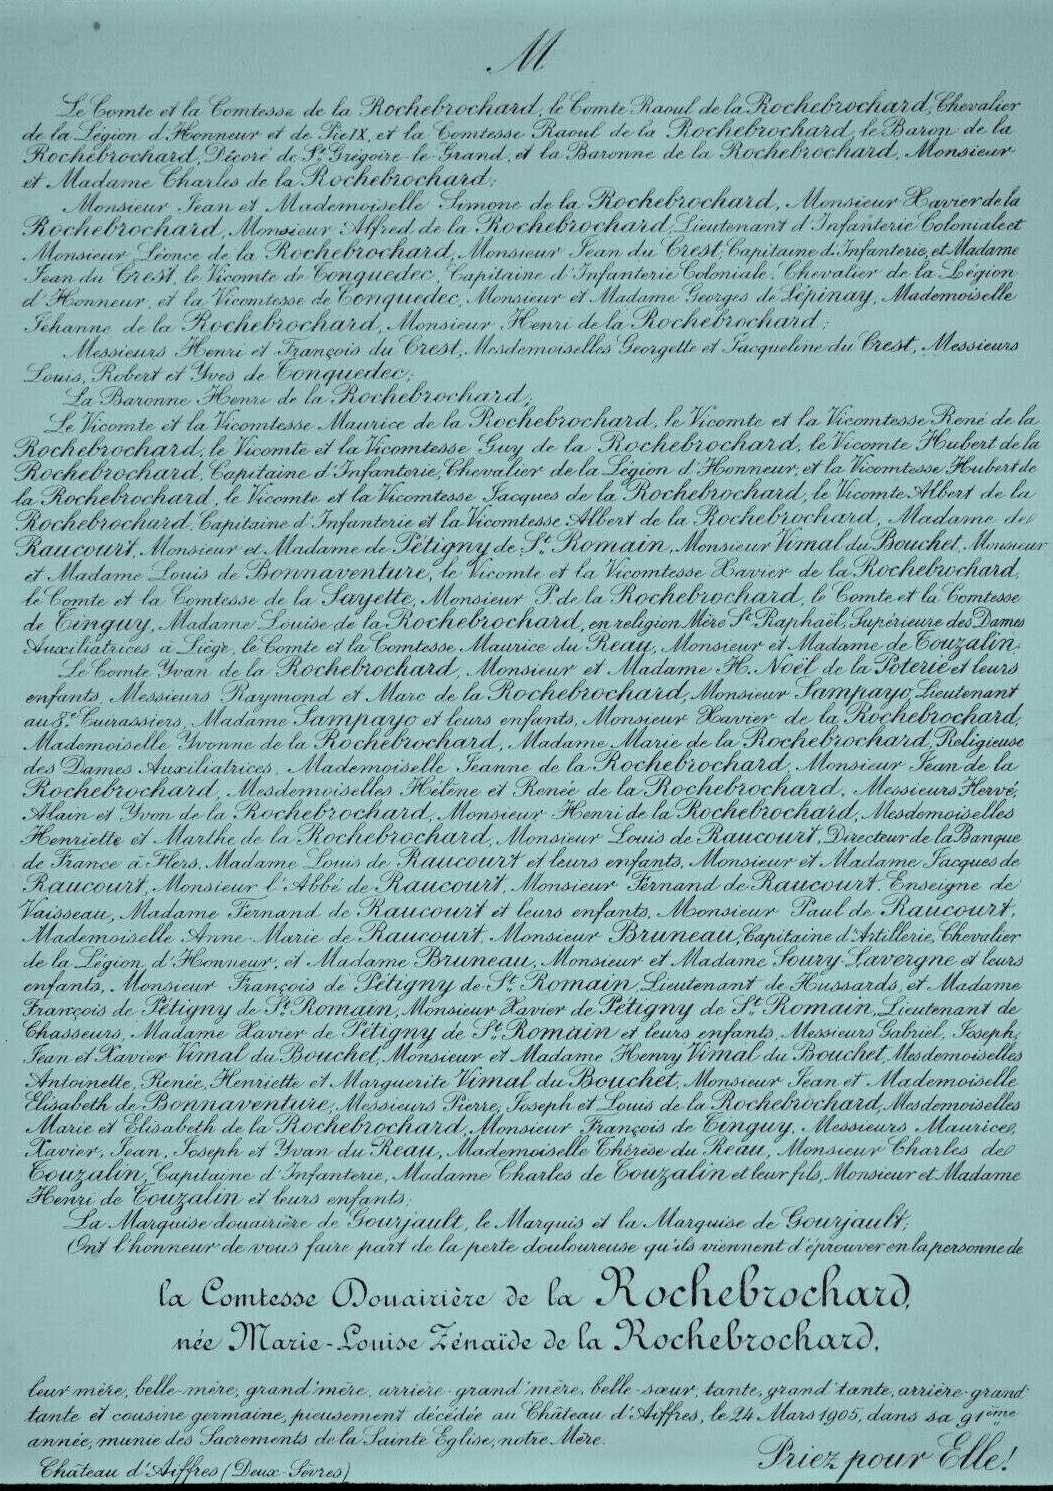 M
Le Comte et la Comtesse de la Rochebrochard, le Comte Raoul de la Rochebrochard, Chevalier
de la Légion d'Honneur et de Pie IX, et la Comtesse Raoul de la Rochebrochard, le Baron de la
Rochebrochard, Décoré de St Grégoire-le-Grand, et la Baronne de la Rochebrochard, Monsieur
et Madame Charles de la Rochebrochard;
Monsieur Jean et Mademoiselle Simone de la Rochebrochard, Monsieur Xavier de la
Rochebrochard, Monsieur Alfred de la Rochebrochard, Lieutenant d'Infanterie Coloniale et
Monsieur Léonce de la Rochebrochard, Monsieur Jean du Crest, Capitaine d'Infanterie, et Madame
Jean du Crest, le Vicomte de Tonquedec, Capitaine d'Infanterie Coloniale, Chevalier de la Légion
d'Honneur, et la Vicomtesse de Tonquedec, Monsieur et Madame Georges de Lépinay, Mademoiselle
Jéhanne de la Rochebrochard, Monsieur Henri de la Rochebrochard;
Messieurs Henri et François du Crest, Mesdemoiselles Georgette et Jacqueline du Crest, Messieurs
Louis, Robert et Yves de Tonquedec;
La Baronne Henri de la Rochebrochard;
Le Vicomte et la Vicomtesse Maurice de la Rochebrochard, le Vicomte et la Vicomtesse René de la
Rochebrochard, le Vicomte et la Vicomtesse Guy de la Rochebrochard, le Vicomte Hubert de la
Rochebrochard, Capitaine d'Infanterie, Chevalier de la Légion d'Honneur, et la Vicomtesse Hubert de
la Rochebrochard, le Vicomte et la Vicomtesse Jacques de la Rochebrochard, le Vicomte Albert de la
Rochebrochard, Capitaine d'Infanterie et la Vicomtesse Albert de la Rochebrochard, Madame de
Raucourt, Monsieur et Madame de Pétigny de St Romain, Monsieur Vimal du Bouchet, Monsieur
et Madame Louis de Bonnaventure, le Vicomte et la Vicomtesse Xavier de la Rochebrochard,
le Comte et la Comtesse de la Sayette, Monsieur P. de la Rochebrochard, le Comte et la Comtesse
de Tinguy, Madame Louise de la Rochebrochard, en religion Mère St Raphaël, Supérieure des Dames
Auxiliatrices à Liège, le Comte et la Comtesse Maurice du Reau, Monsieur et Madame de Touzalin.
Le Comte Yvan de la Rochebrochard, Monsieur et Madame H. Noël de la Poterie et leurs
enfants, Messieurs Raymond et Marc de la Rochebrochard, Monsieur Sampayo, Lieutenant
au 8e Cuirassiers, Madame Sampayo et leurs enfants, Monsieur Xavier de la Rochebrochard,
Mademoiselle Yvonne de la Rochebrochard, Madame Marie de la Rochebrochard, Religieuse
des Dames Auxiliatrices, Mademoiselle Jeanne de la Rochebrochard, Monsieur Jean de la
Rochebrochard, Mesdemoiselles Hélène et Renée de la Rochebrochard, Messieurs Hervé,
Alain et Yvon de la Rochebrochard, Monsieur Henri de la Rochebrochard, Mesdemoiselles
Henriette et Marthe de la Rochebrochard, Monsieur Louis de Raucourt, Directeur de la Banque
de France à Flers, Madame Louis de Raucourt et leurs enfants, Monsieur et Madame Jacques de
Raucourt, Monsieur l'Abbé de Raucourt, Monsieur Fernand de Raucourt, Enseigne de
Vaisseau, Madame Fernand de Raucourt et leurs enfants, Monsieur Paul de Raucourt,
Mademoiselle Anne-Marie de Raucourt, Monsieur Bruneau, Capitaine d'Artillerie, Chevalier
de la Légion d'Honneur, et Madame Bruneau, Monsieur et Madame Soury-Lavergne et leurs
enfants, Monsieur François de Pétigny de St Romain, Lieutenant de Hussards, et Madame
François de Pétigny de St Romain, Monsieur Xavier de Pétigny de St Romain, Lieutenant de
Chasseurs, Madame Xavier de Pétigny de St Romain et leurs enfants, Messieurs Gabriel, Joseph,
Jean et Xavier Vimal du Bouchet, Monsieur et Madame Henry Vimal du Bouchet, Mesdemoiselles
Antoinette, Renée, Henriette et Marguerite Vimal du Bouchet, Monsieur Jean et Mademoiselle
Elisabeth de Bonnaventure, Messieurs Pierre, Joseph et Louis de la Rochebrochard, Mesdemoiselles
Marie et Elisabeth de la Rochebrochard, Monsieur François de Tinguy, Messieurs Maurice,
Xavier, Jean, Joseph et Yvan du Reau, Mademoiselle Thérèse du Reau, Monsieur Charles de
Touzalin, Capitaine d'Infanterie, Madame Charles de Touzalin et leur fils, Monsieur et Madame
Henri de Touzalin et leurs enfants;
La Marquise douairière de Gourjault, le Marquis et la Marquise de Gourjault;
Ont l'honneur de vous faire part de la perte douloureuse qu'ils viennent d'éprouver en la personne de
la Comtesse Douairière de la Rochebrochard,
née Marie-Louise Zénaïde de la Rochebrochard,
leur mère, belle-mère, grand'mère, arrière-grand'mère, belle-sœur, tante, grand'tante, arrière-grand'
tante et cousine germaine, pieusement décédée au Château d'Aiffres, le 24 Mars 1905, dans sa 91ème
année, munie des Sacrements de la Sainte Eglise, notre Mère.
Priez pour Elle!
Château d'Aiffres (Deux-Sèvres)